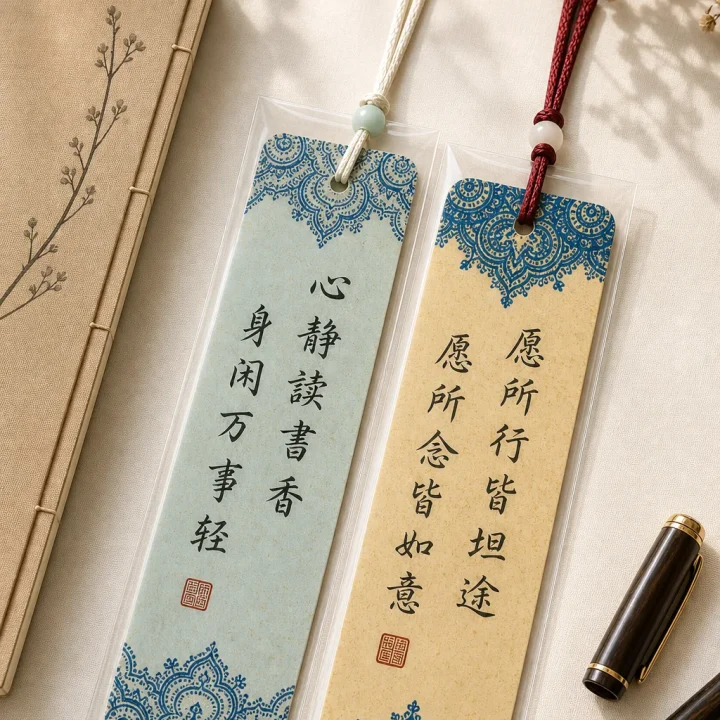 心静讀書香
身闲万事轻
愿所行皆坦途
愿所念皆如意